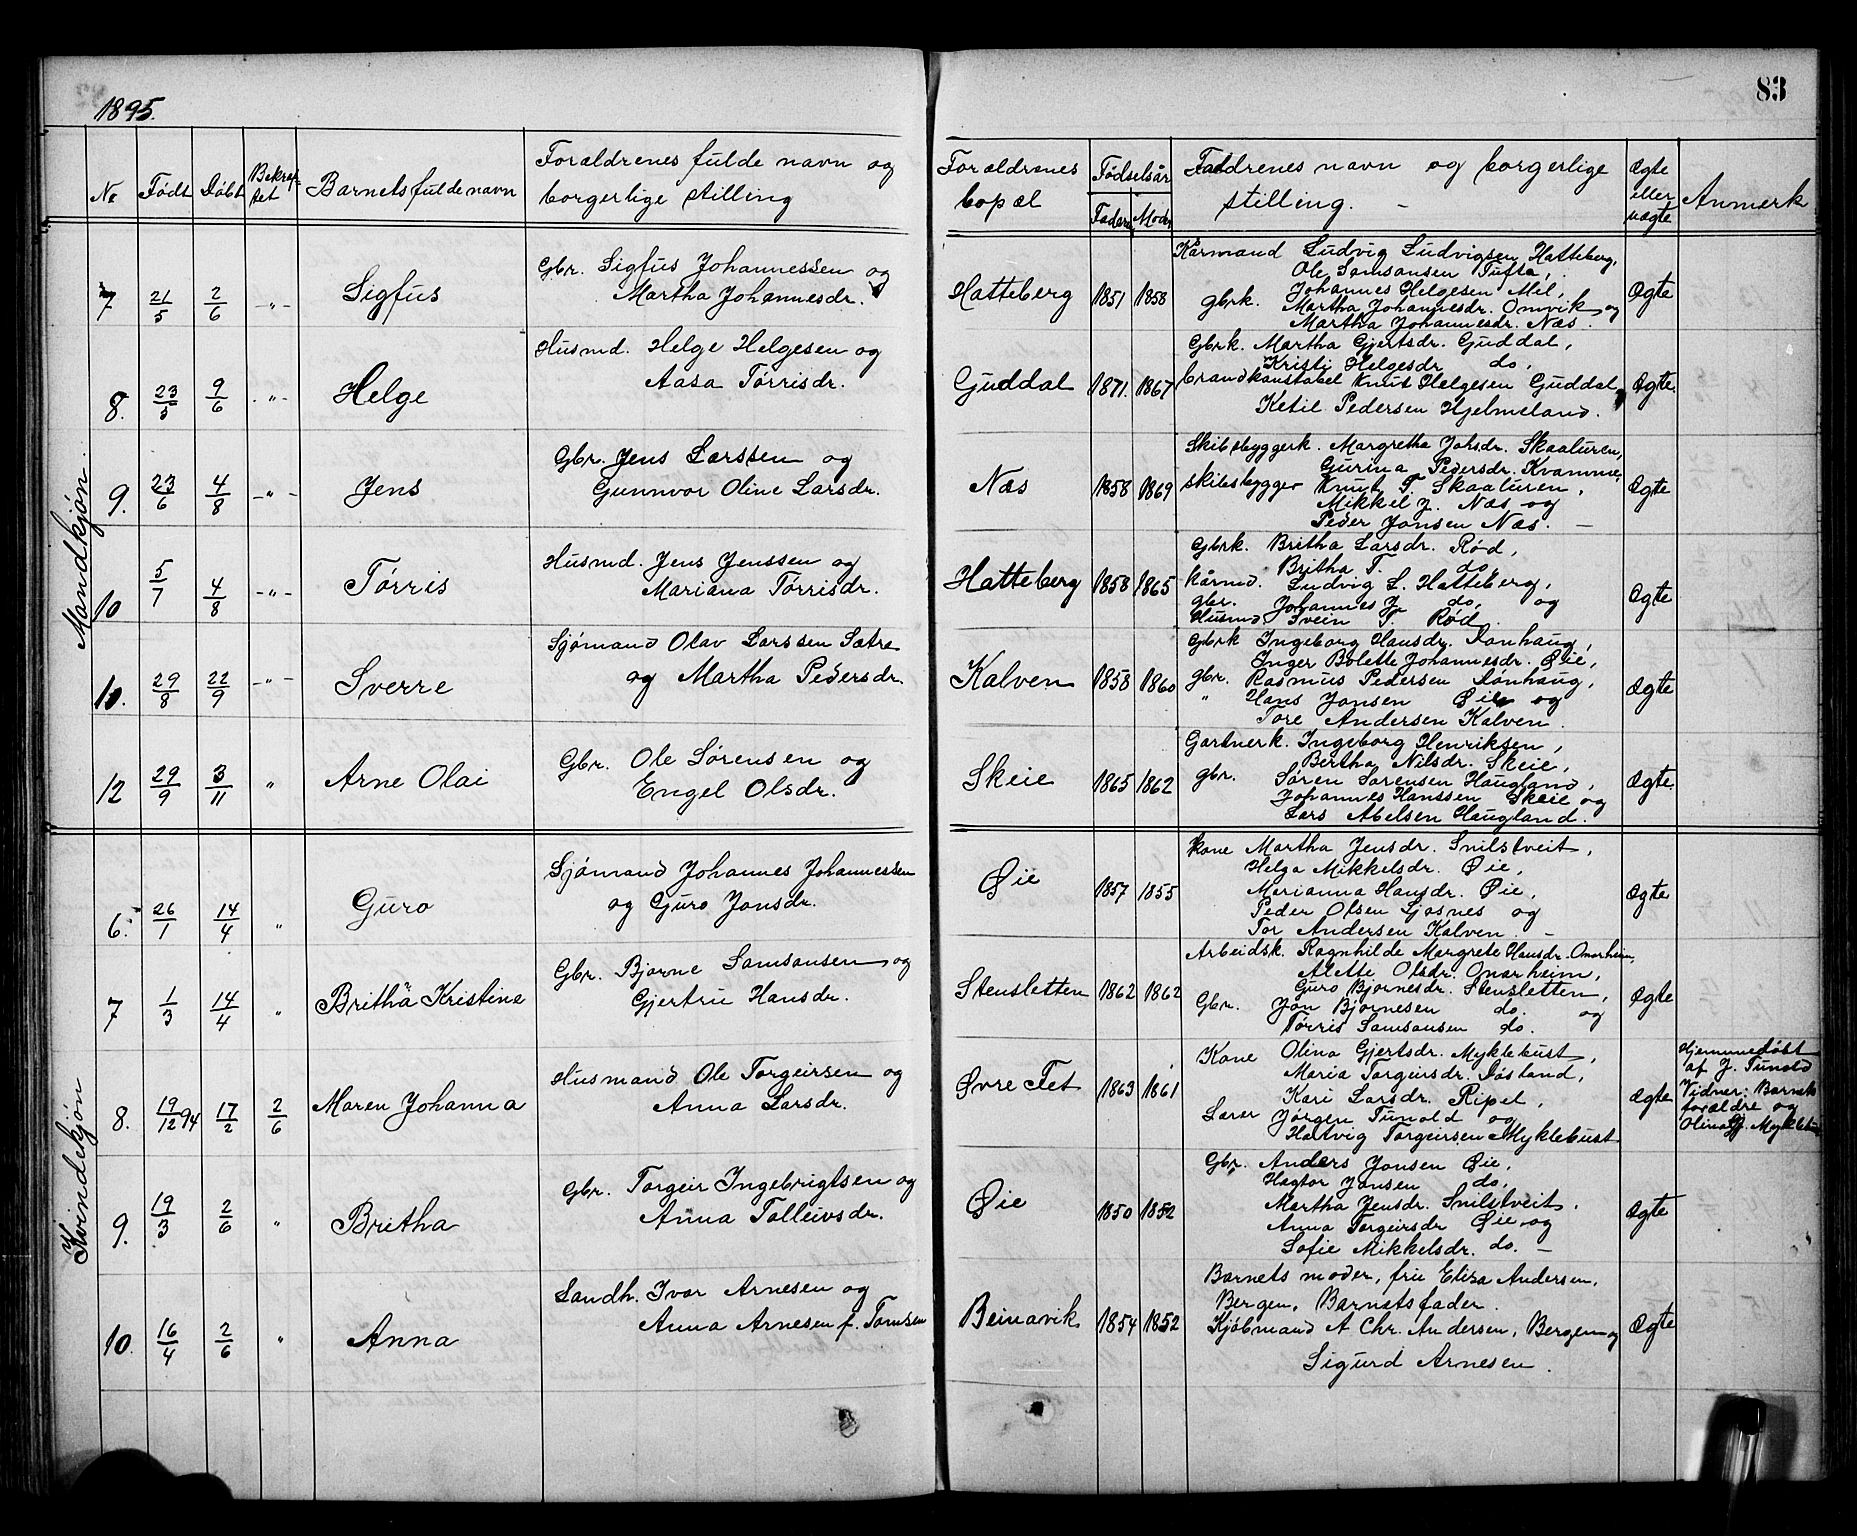 1895.
83
№ Født Døbt Bekræf-
tet Barnets fulde navn Forældrenes fulde navn og
borgerlige stilling
Forældrenes
bopæl Fødselsår
Faders Moders Faddrenes navn og borgerlige
stilling. Ægte
eller
uægte Anmerk
Mandkjøn.
7 21/5 2/6 -"- Sigfus
Gbr. Sigfus Johannessen og
Martha Johannesdr.
Hatteberg 1851 1858
Kårmand Ludvig Ludvigsen Hatteberg,
Ole Samsonsen Tufta,
Johannes Helgesen Mel,
gbrk. Martha Johannesdr. Omvik og
Martha Johannesdr. Næs.
Ægte
8. 23/5 9/6 -"- Helge
Husmd. Helge Helgesen og
Aasa Tørrisdr.
Guddal 1871. 1867
Gbrk. Martha Gjertsdr. Guddal,
Kristi Helgesdr. do,
brandkonstabel Knut Helgesen Guddal,
Ketil Pedersen Hjelmeland.
Ægte.
9. 23/6 4/8 -"- Jens
Gbr. Jens Larssen og
Gunnvor Oline Larsdr.
Næs 1858 1869
Skibsbyggerk. Margretha Johsdr. Skaaluren,
Gurina Pedersdr. Kvamme,
skibsbygger Knut T. Skaaluren,
Mikkel J. Næs og
Peder Jonsen Næs. —
Ægte
10 5/7 4/8 -"- Tørris
Husmd. Jens Jenssen og
Mariana Tørrisdr.
Hatteberg 1858 1865
Gbrk. Britha Larsdr. Rød,
Britha T. do,
kårmd. Ludvig L. Hatteberg,
gbr. Johannes J. do. og
Husmd Svein T. Rød.
Ægte
10. 29/8 22/9 -"- Sverre
Sjømand Olav Larssen Sætre
og Martha Pedersdr.
Kalven 1858 1860
Gbrk Ingeborg Hansdr. Dønhaug,
Inger Bolette Johannesdr. Øie,
gbr. Rasmus Pedersen Dønhaug,
" Hans Jonsen Øie og
Tore Andersen Kalven.
Ægte
12 29/9 3/11 " Arne Olai
Gbr. Ole Sørensen og
Engel Olsdr.
Skeie 1865 1862
Gartnerk. Ingeborg Henriksen,
Bertha Nilsdr. Skeie,
gbr. Søren Sørensen Haugland,
Johannes Hanssen Skeie og
Lars Abelsen Haugland.
Ægte.
Kvindekjøn
6. 26/1 14/4 " Guro
Sjømand Johannes Johannessen
og Guro Jonsdr.
Øie 1857 1855
Kone Martha Jensdr. Snilstveit,
Helga Mikkelsdr. Øie,
Marianna Hansdr. Øie,
Peder Olsen Ljosnes og
Tor Andersen Kalven. —
Ægte
7 1/3 14/4 " Britha Kristine
Gbr. Bjorne Samsonsen og
Gjertru Hansdr.
Stensletten 1862 1862
Arbeidsk. Ragnhilde Margrete Hansdr. Onarheim,
Alette Olsdr. Onarheim,
Guro Bjornesdr. Stensletten,
Gbr. Jon Bjornesen do. og
Tørris Samsonsen do.
Ægte
8. 19/12 94 17/2 2/6 Maren Johanna
Husmand Ole Torgeirsen og
Anna Larsdr.
Øvre Fet 1863 1861
Kone Olina Gjertsdr. Myklebust,
Maria Torgeirsdr. Døsland,
Kari Larsdr. Ripel,
Lærer Jørgen Tunold og
Hartvig Torgeirsen Myklebust
Ægte
Hjemmedøbt
af J. Tunold
Vidner: Barnets
forældre og
Olina Gj. Myklebust
9. 19/3 2/6 " Britha
Gbr. Torgeir Ingebrigtsen og
Anna Tolleivsdr.
Øie 1850 1852
Gbr. Anders Jonsen Øie,
Hægtor Jonsen do,
Martha Jensdr. Snilstveit.
Anna Torgeirsdr Øie og
Sofie Mikkelsdr. do. —
Ægte
10. 16/4 2/6 " Anna
Landh. Ivar Arnesen og
Anna Arnesen f. Tomsen
Beinavik 1854 1852
Barnets moder, fru Eliza Andersen,
Bergen, Barnets fader.
Kjøbmand A Chr. Andersen, Bergen og
Sigurd Arnesen.
Ægte